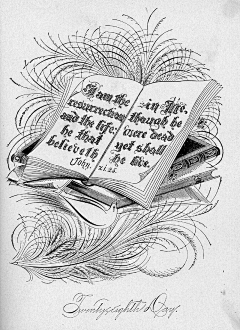 I am the
resurrection
and the life:
he that
believeth
John. xi.25.
in Me,
though he
were dead
yet shall
he live.
Twentyeighth Day.